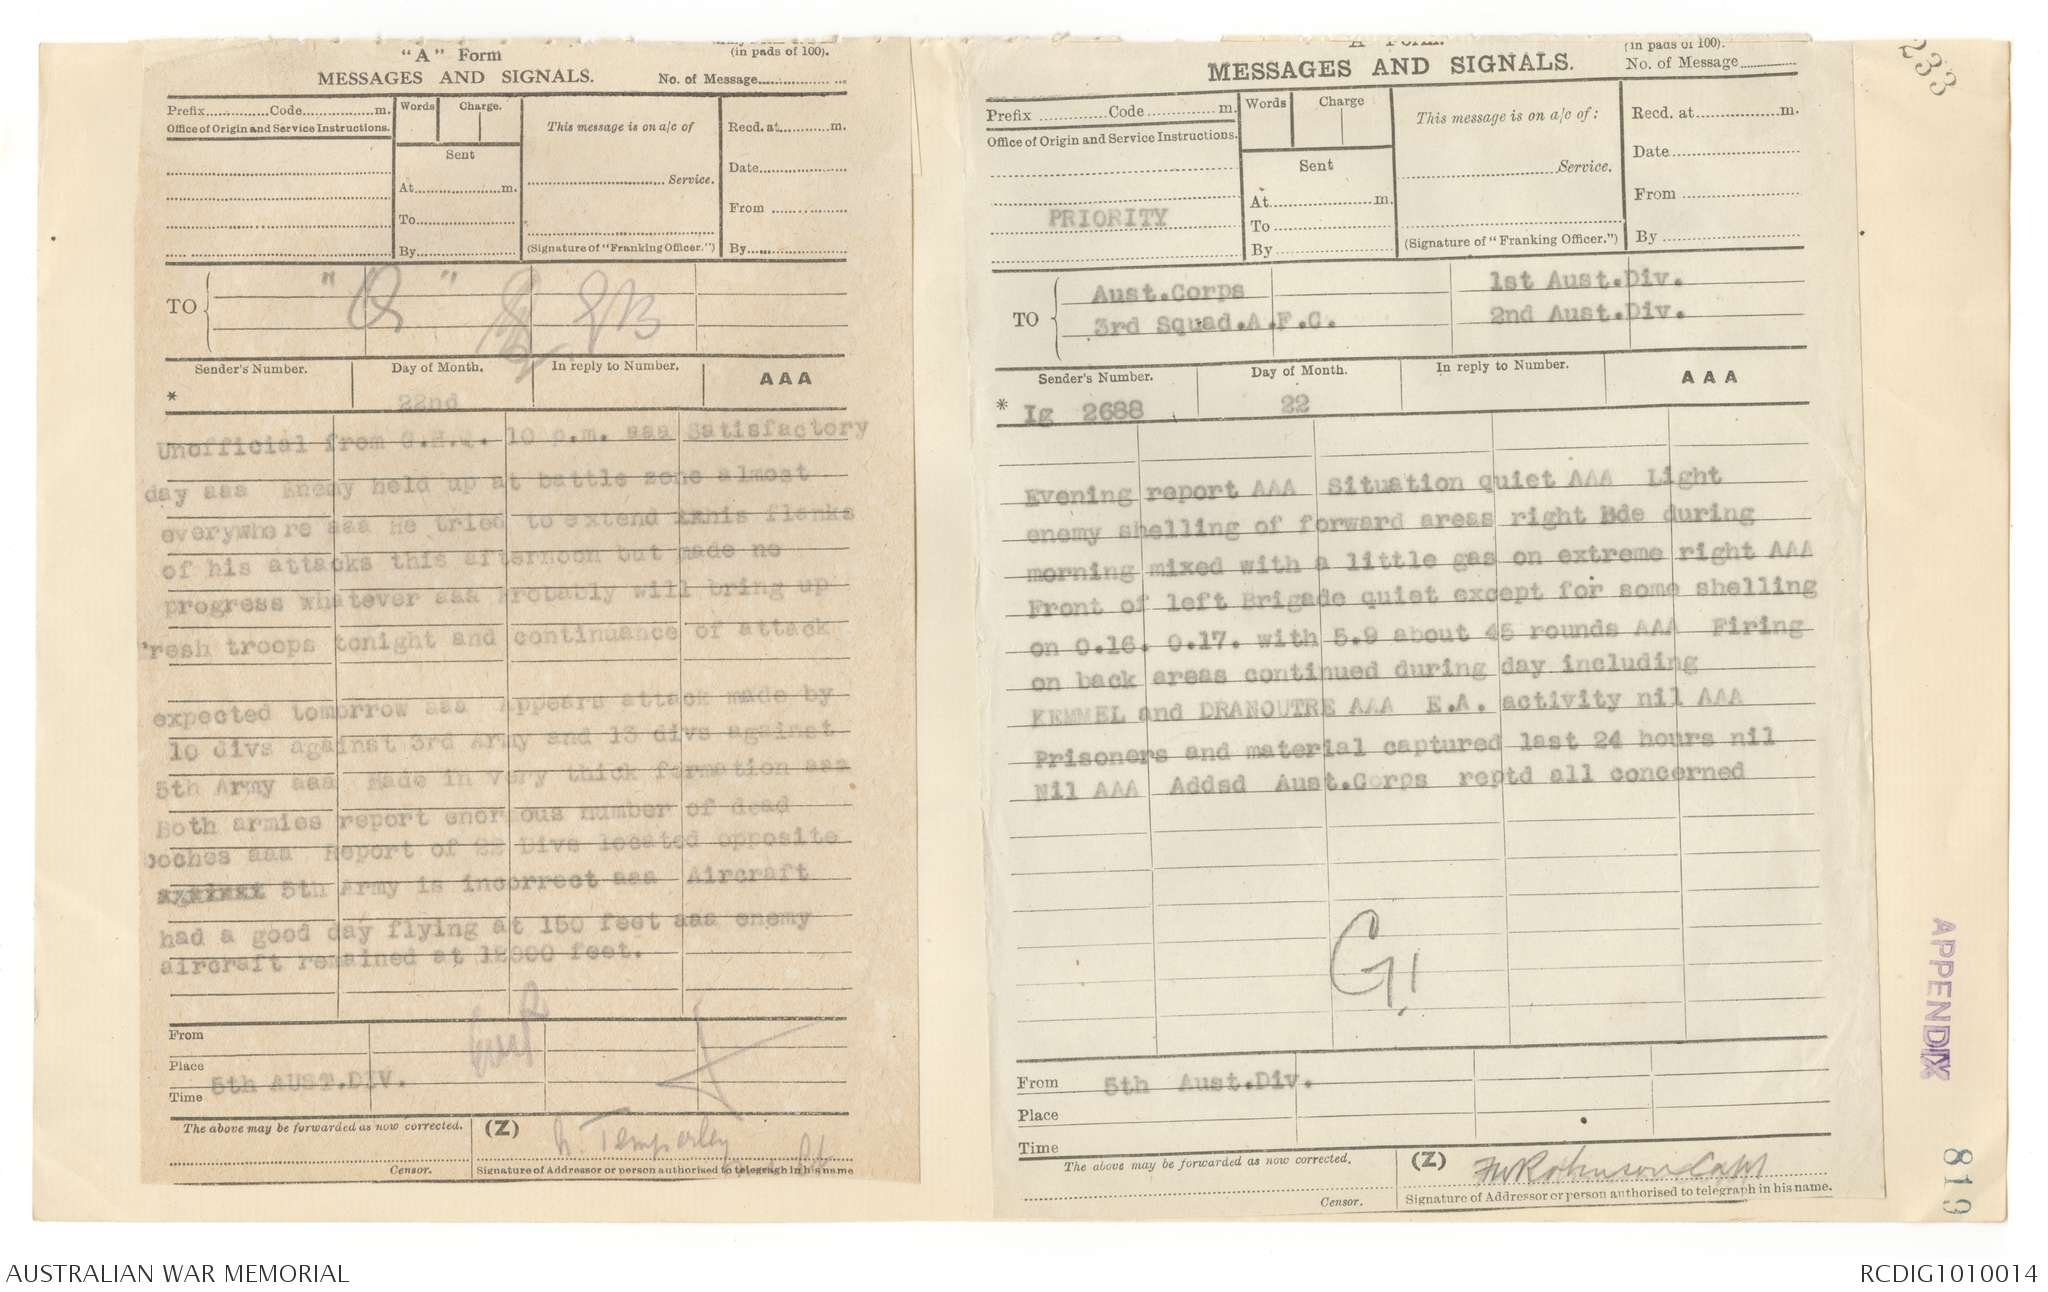 "A" Form
(in pads of 100).
MESSAGES AND SIGNALS.
No. of Message
Prefix Code m.
Words Charge.
This message is on a/c of
Recd. at m.
Office of Origin and Service Instructions.
Sent
Date
At m.
Service.
To
From
By
(Signature of "Franking Officer.")
By
TO
"Q"
Sender's Number.
Day of Month.
In reply to Number.
AAA
*
22nd
Unofficial from G.H.Q. 10 p.m. aaa Satisfactory
day aaa Enemy held up at battle zone almost
everywhere aaa He tried to extend his flanks
of his attacks this afternoon but made no
progress whatever aaa Probably will bring up
'resh troops tonight and continuance of attack
expected tomorrow aaa Appears attack made by
10 divs against 3rd Army and 13 divs against
5th Army aaa Made in very thick formation aaa
Both armies report enormous number of dead
boches aaa Report of 22 Divs located opposite
against 5th Army is incorrect aaa Aircraft
had a good day flying at 150 feet aaa enemy
aircraft remained at 12000 feet.
From
Place
5th AUST.DIV.
Time
The above may be forwarded as now corrected.
(Z)
N. Temperley
Censor.
Signature of Addressor or person authorised to telegraph in his name
"A" Form.
(in pads of 100).
MESSAGES AND SIGNALS.
No. of Message
Prefix Code m.
Words Charge
This message is on a/c of:
Recd. at m.
Office of Origin and Service Instructions.
Sent
Date
Service.
At m.
From
PRIORITY
To
By
(Signature of "Franking Officer.")
By
TO
Aust.Corps 1st Aust.Div.
3rd Squad.A.F.C. 2nd Aust.Div.
Sender's Number.
Day of Month.
In reply to Number.
AAA
* Ig 2688
22
Evening report AAA Situation quiet AAA Light
enemy shelling of forward areas right Bde during
morning mixed with a little gas on extreme right AAA
Front of left Brigade quiet except for some shelling
on O.16. O.17. with 5.9 about 45 rounds AAA Firing
on back areas continued during day including
KEMMEL and DRANOUTRE AAA E.A. activity nil AAA
Prisoners and material captured last 24 hours nil
Nil AAA Addsd Aust.Corps reptd all concerned
G.
From
5th Aust.Div.
Place
Time
The above may be forwarded as now corrected.
(Z)
FWRobinson Capt
Censor.
Signature of Addressor or person authorised to telegraph in his name.
233
APPENDIX
819
AUSTRALIAN WAR MEMORIAL
RCDIG1010014